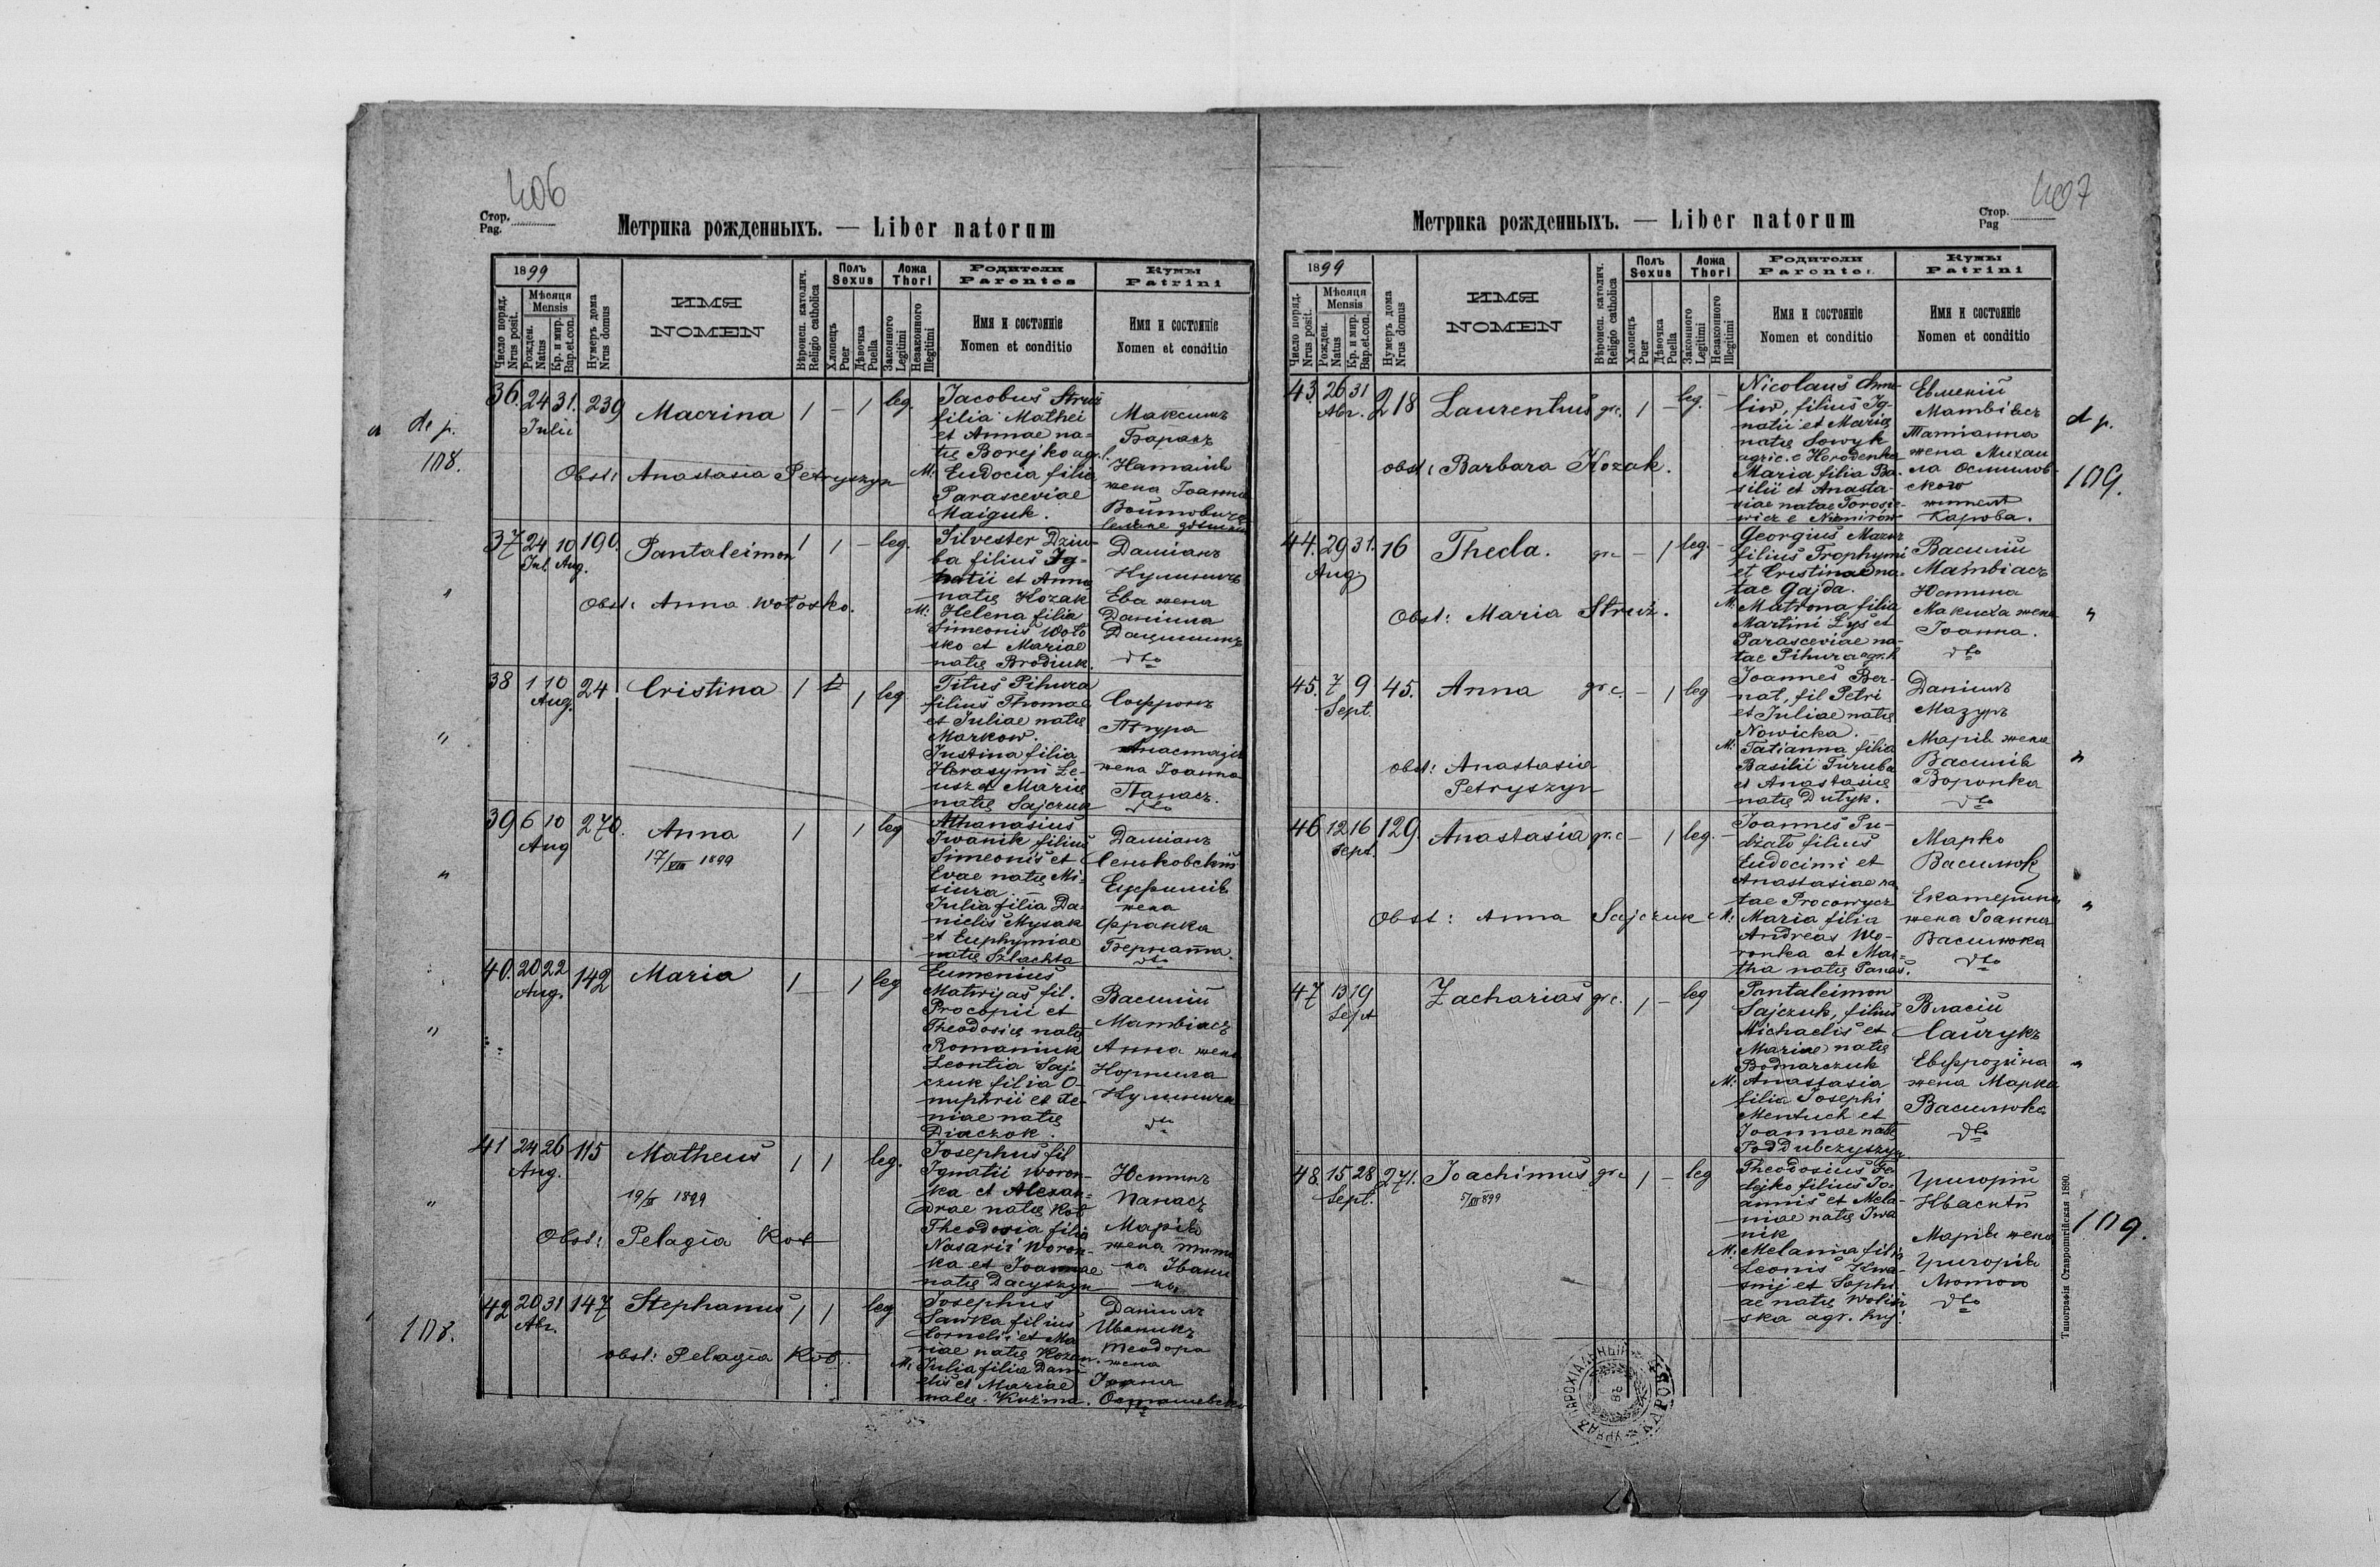 406
Стор.
Pag.
Метрика рожденныхъ. — Liber natorum
1899
Число поряд.
Nrus posit.
Мѣсяця
Mensis
Рожден.
Natus
Кр. и мир.
Bap. et. con.
Нумеръ дома
Nrus domus
ИМЯ
NOMEN
Вѣроисп. католич.
Religio catholica
Полъ
Sexus
Хлопець
Puer
Дѣвочка
Puella
Ложа
Thori
Законного
Legitimi
Незаконного
Illegitimi
Родители
Parentes
Имя и состояніе
Nomen et conditio
Кумы
Patrini
Имя и состояніе
Nomen et conditio
de p.
108.
36. 24 31. 239 Macrina 1 – 1 leg.
Julii
Obst: Anastasia Petryszyn
Jacobus Struż
filia Mathei
et Annae na-
tę Borejko agr.
M: Eudocia filia
Parasceviae
Maiguk.
Максимъ
Баранъ
жена Іоанна
37 24 10 190. Pantaleimon 1 1 – leg.
Jul. Aug.
Obst: Anna Wołosko.
Silvester Dziu-
ba filius Ig-
natii et Anna
natę Kozak
M: Helena filia
Simeonis Woło
sko et Mariae
natę Brodiuk.
Даміанъ
Кулиничъ
Ева жена
Даніила
Дацишинъ
dto
38 1 10 24 Cristina 1 1 leg
Aug.
Titus Pihura
filius Thomae
et Juliae natę
Markow.
Justina filia
Herasymi Le-
usz et Marię
natę Sajczuk
Софронъ
Пѣгура
Анастазія
жена Іоанна
Панасъ.
dto
39 6 10 270. Anna 1 1 leg
Aug
17/VIII 1899
Athanasius
Iwanik filius
Simeonis et
Evae natę Mi-
siura.
Julia filia Da-
nielis Mysak
et Euphymiae
natę Szlachta
Даміанъ
Сеньковскій
Ефимія
жена
Франка
Берната.
dto
40. 20 22 142 Maria 1 – 1 leg
Aug.
Eumenius
Matwijas fil.
Procopii et
Theodosię natę
Romaniuk
Leontia Saj-
czuk filia O-
nuphrii et Xe-
niae natę
Diaczok.
Василій
Матвіасъ
Анна жена
Корнила
Кулинича
dto
41 24 26 115 Matheus 1 1 leg.
Aug.
19/X 1899
Obst: Pelagia Kot
Josephus fil
Ignatii Woron-
ka et Alexan-
drae natę Kot
Theodosia filia
Nasarii Woron-
ka et Joannae
natę Dacyszyn
Юстинъ
Панасъ
Марія
жена
42 20 31 147 Stephanus 1 1 leg
Obst: Pelagia Kot.
108.
Josephus
Sawka filius
Cornelii et Ma
riae natę Kozan.
M: Julia filia Dani
elis et Mariae
natę Kuźma.
Даніилъ
Иваникъ
Теодора
жена
Іоана
407
Стор.
Pag
Метрика рожденныхъ. — Liber natorum
1899
Число поряд.
Nrus posit.
Мѣсяця
Mensis
Рожден.
Natus
Кр. и мир.
Bap. et. con.
Нумеръ дома
Nrus domus
ИМЯ
NOMEN
Вѣроисп. католич.
Religio catholica
Полъ
Sexus
Хлопець
Puer
Дѣвочка
Puella
Ложа
Thori
Законного
Legitimi
Незаконного
Illegitimi
Родители
Parentes
Имя и состояніе
Nomen et conditio
Кумы
Patrini
Имя и состояніе
Nomen et conditio
43. 26 31 218 Laurentius gr.c. 1 – leg. –
obst: Barbara Kozak.
Nicolaus
filius Ig-
natii et Marię
natę Sowyk
agric. e Horodenka
Maria filia Ba-
silii et Anasta-
siae natae Torosie-
wicz e Niemirów
Евменій
Матвіасъ
Татіанна
жена Михаи
ла
Карова.
d p.
109.
44. 29 31. 16 Thecla. gr.c – 1 leg. –
Aug.
Obst: Maria Struż.
Georgius Mazur
filius Trophymi
et Cristinae na-
tae Gajda.
M: Matrona filia
Martini Łys et
Parasceviae na-
tae Pihura agr.
Василій
Матвіасъ
Юстина
жена
Іоанна.
dto
45. 7 9 45. Anna gr.c. – 1 leg
Sept.
obst: Anastasia
Petryszyn
Joannes Ber-
nat, fil Petri
et Juliae natę
Nowicka.
M: Tatianna filia
Basilii Turuba
et Anastasię
natę Dutyk.
Даніилъ
Мазуръ
Марія жена
Василія
Воронка
dto
46 12 16 129. Anastasia gr.c – 1 leg. –
Sept.
Obst: Anna Sajczuk
Joannes Pu-
dżało filius
Eudocimi et
Anastasiae na
tae Procowycz
M: Maria filia
Andreas Wo-
ronka et Mar-
tha natę Panas.
Марко
Василюк
Екатерина
жена Іоанна
Василюка
dto
47 13 19 Zacharias gr.c. 1 – leg
Sept
Pantaleimon
Sajczuk, filius
Michaelis et
Mariae natę
Bodnarczuk
M: Anastasia
filia Josephi
Mentuch et
Joannae natę
Poddubczyszyn
Власій
Сайчукъ
Евфрозина
жена Марка
Василюка
dto
48. 15 28 271. Joachimus gr.c 1 – leg
Sept.
Theodosius Fe
dejko filius Jo-
annis et Mela-
niae natę Iwa
nik
M: Melania filia
Leonis Kwa-
snij et Sophi-
ae natę Wolin
ska agr. huj.
Григорій
Квасній
Марія жена
Григорія
Лютого
dto
109.
Типографія Ставропигійская 1890.